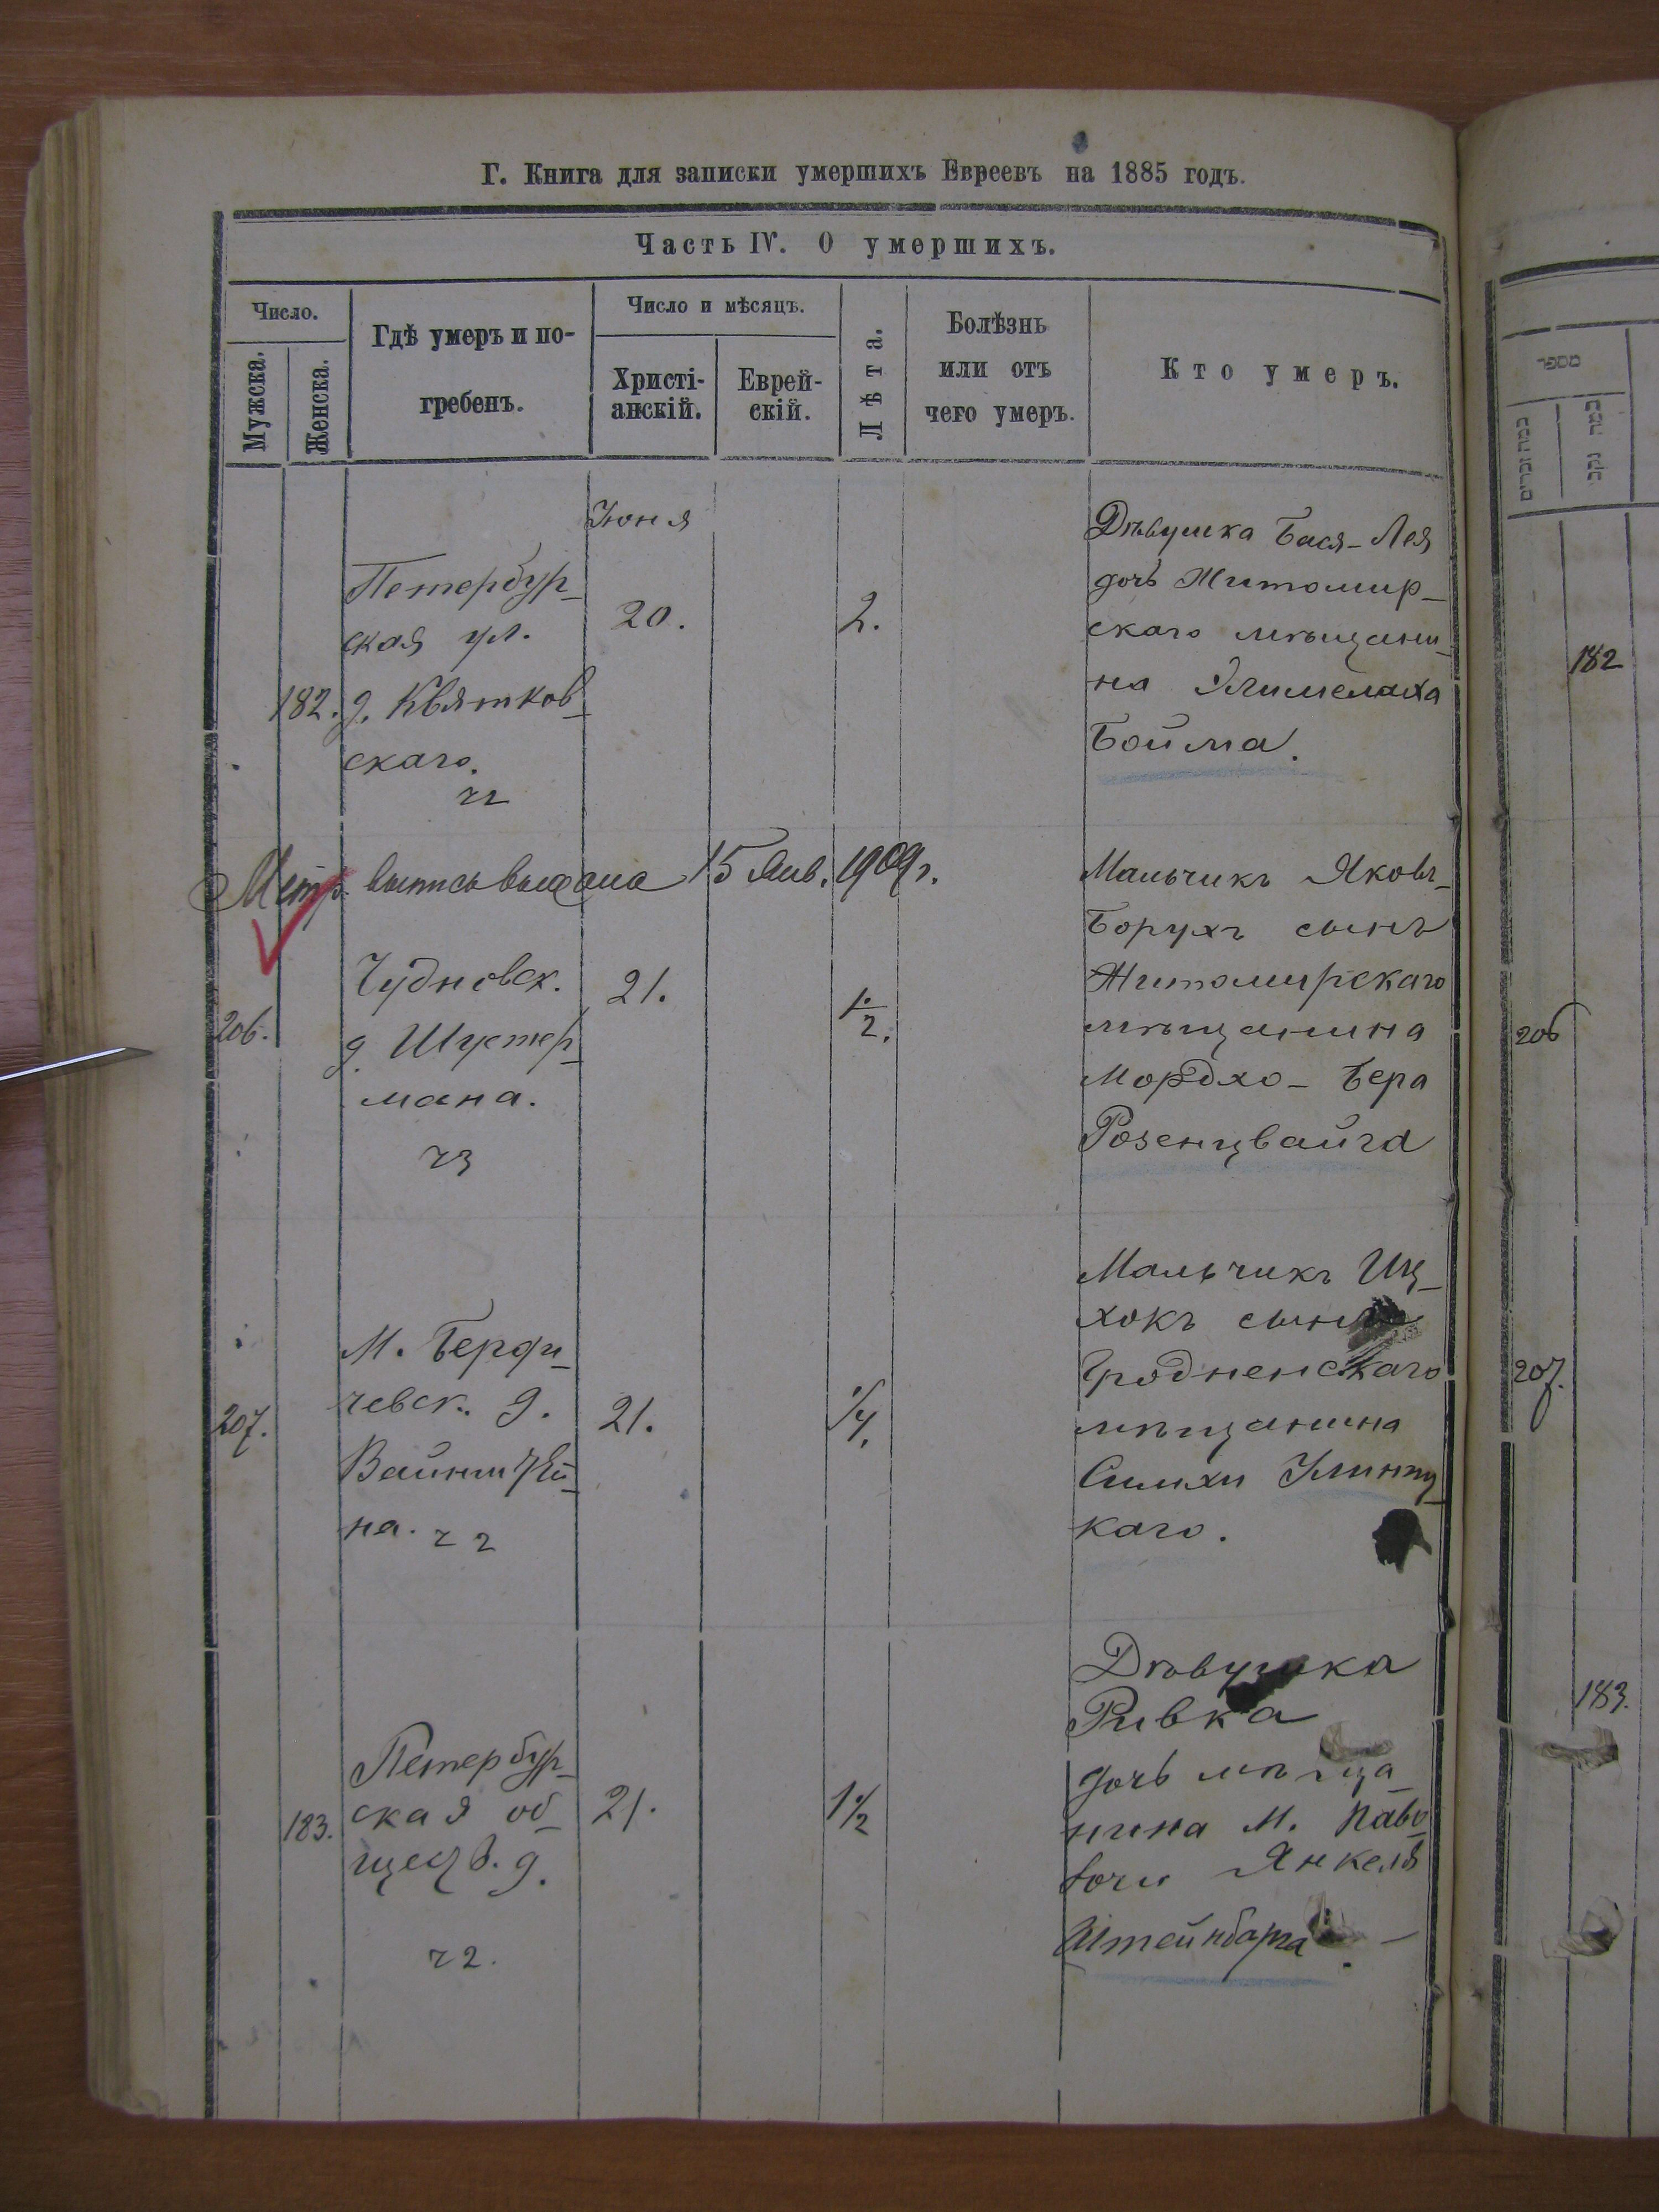 Г. Книга для записки умершихъ Евреевъ на 1885 годъ.
Часть IV. О умершихъ.
Число.
Мужска.
Женска.
Гдѣ умеръ и по-
гребенъ.
Число и мѣсяцъ.
Христі-
анскій.
Еврей-
скій.
Лѣта.
Болѣзнь
или отъ
чего умеръ.
Кто умеръ.
182.
Петербур-
ская ул.
д. Квятков-
скаго.
Июня
20.
2.
Дѣвушка Бася-Лея
дочь Житомир-
скаго мѣщани-
на Элимелаха
Бойма.
Метр. выпись выдана 15 Янв. 1909 г.
206.
Чудновск.
д. Шустер-
мана.
ч3
21.
1/2.
Мальчикъ Яковъ-
Борухъ сынъ
Житомирскаго
мѣщанина
Мордхо-Бера
Розенцвайга
207.
М. Берди-
чевск. д.
Вайнштей-
на. ч2
21.
1/4.
Мальчикъ Иц-
хокъ сынъ
Гродненскаго
мѣщанина
Симхи
каго.
183.
Петербур-
ская об-
д.
ч2.
21.
1 1/2
Дѣвушка
Ривка
дочь мѣща-
нина М. Паво-
лочи Янкеля
Штейнбарга.
182
206
207.
183.